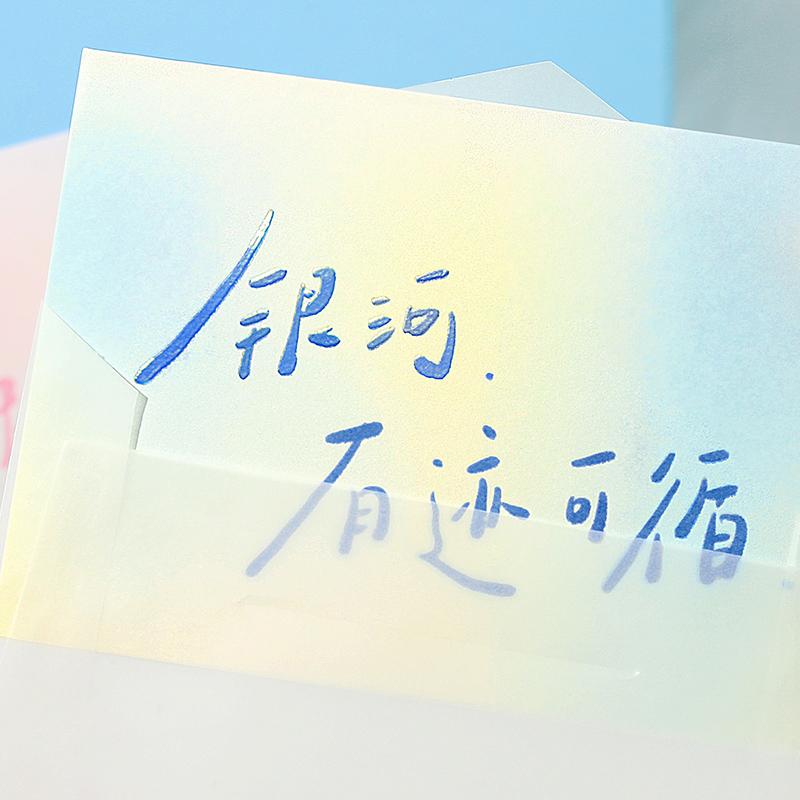 银河.
有迹可循.